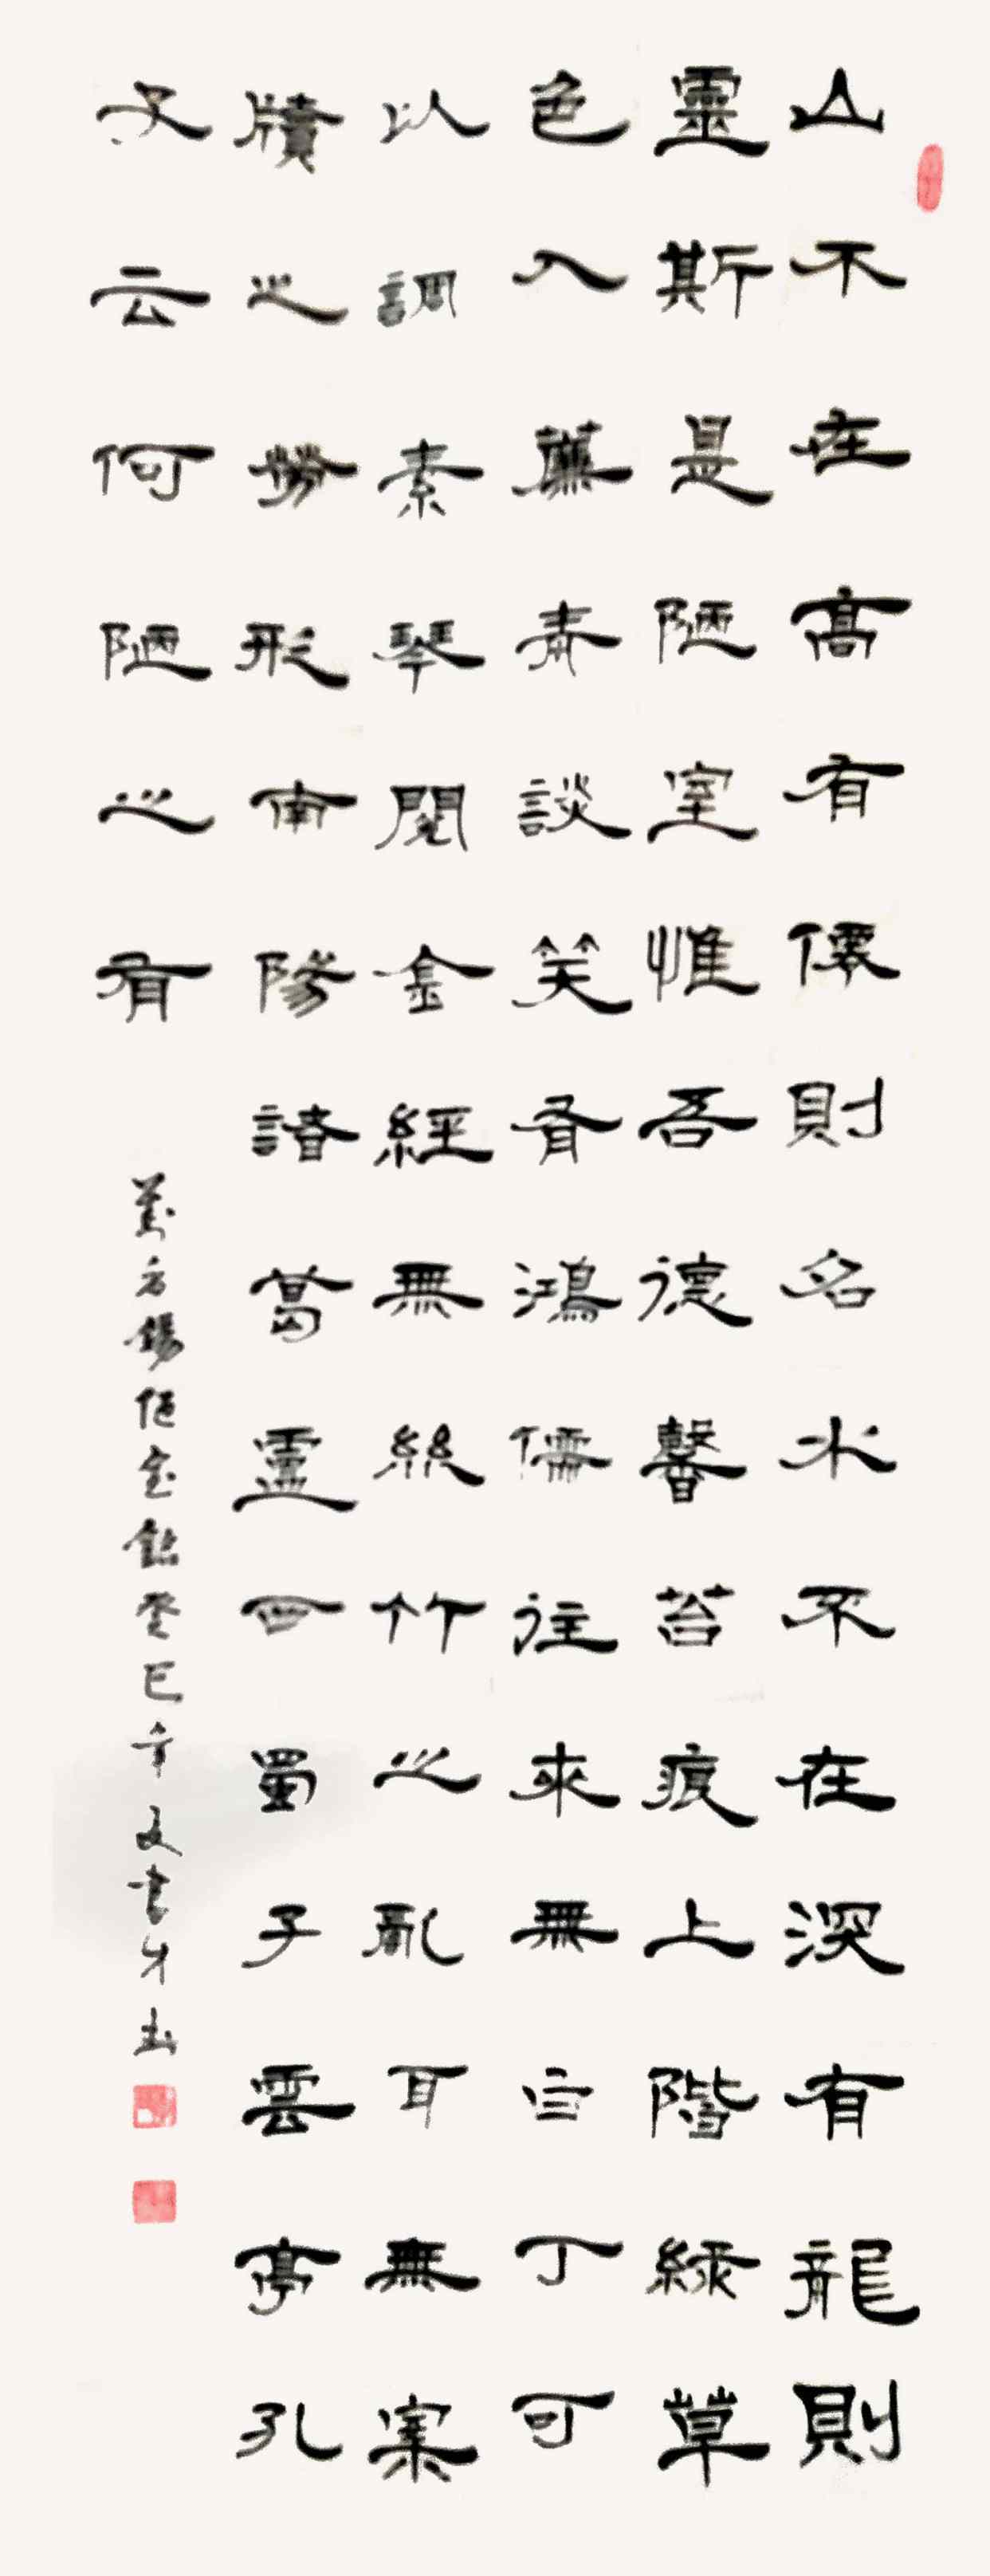 山不在高有僊則名水不在深有龍則
靈斯是陋室惟吾德馨苔痕上階綠草
色入簾青談笑有鴻儒往來無白丁可
以調素琴閱金經無絲竹之亂耳無案
牘之勞形南陽諸葛靈四蜀子雲亭孔
子云何陋之有
癸巳